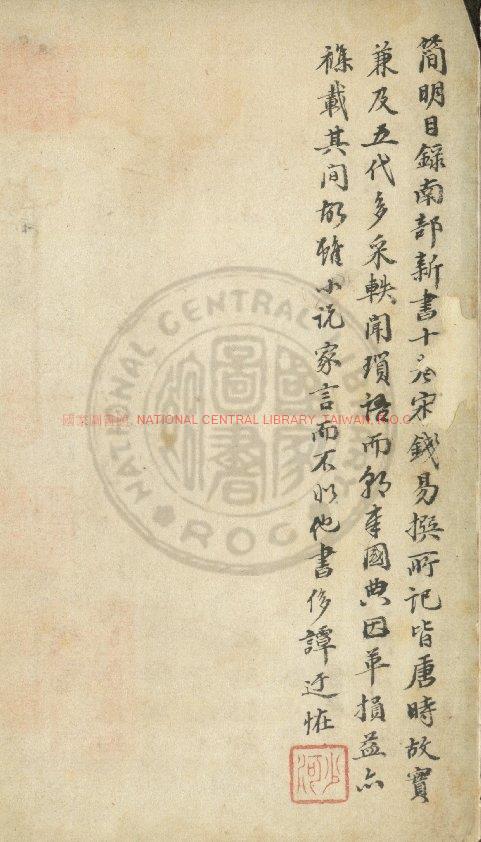 简明目錄南部新書十卷宋錢易撰所記皆唐時故實
兼及五代多采軼聞瑣語而朝章國典因革損益亦
襍載其间故雖小说家言而不似他書侈譚迂恠
少河
國家圖書館, NATIONAL CENTRAL LIBRARY, TAIWAN, R.O.C
NATIONAL CENTRAL LIBRARY
ROC